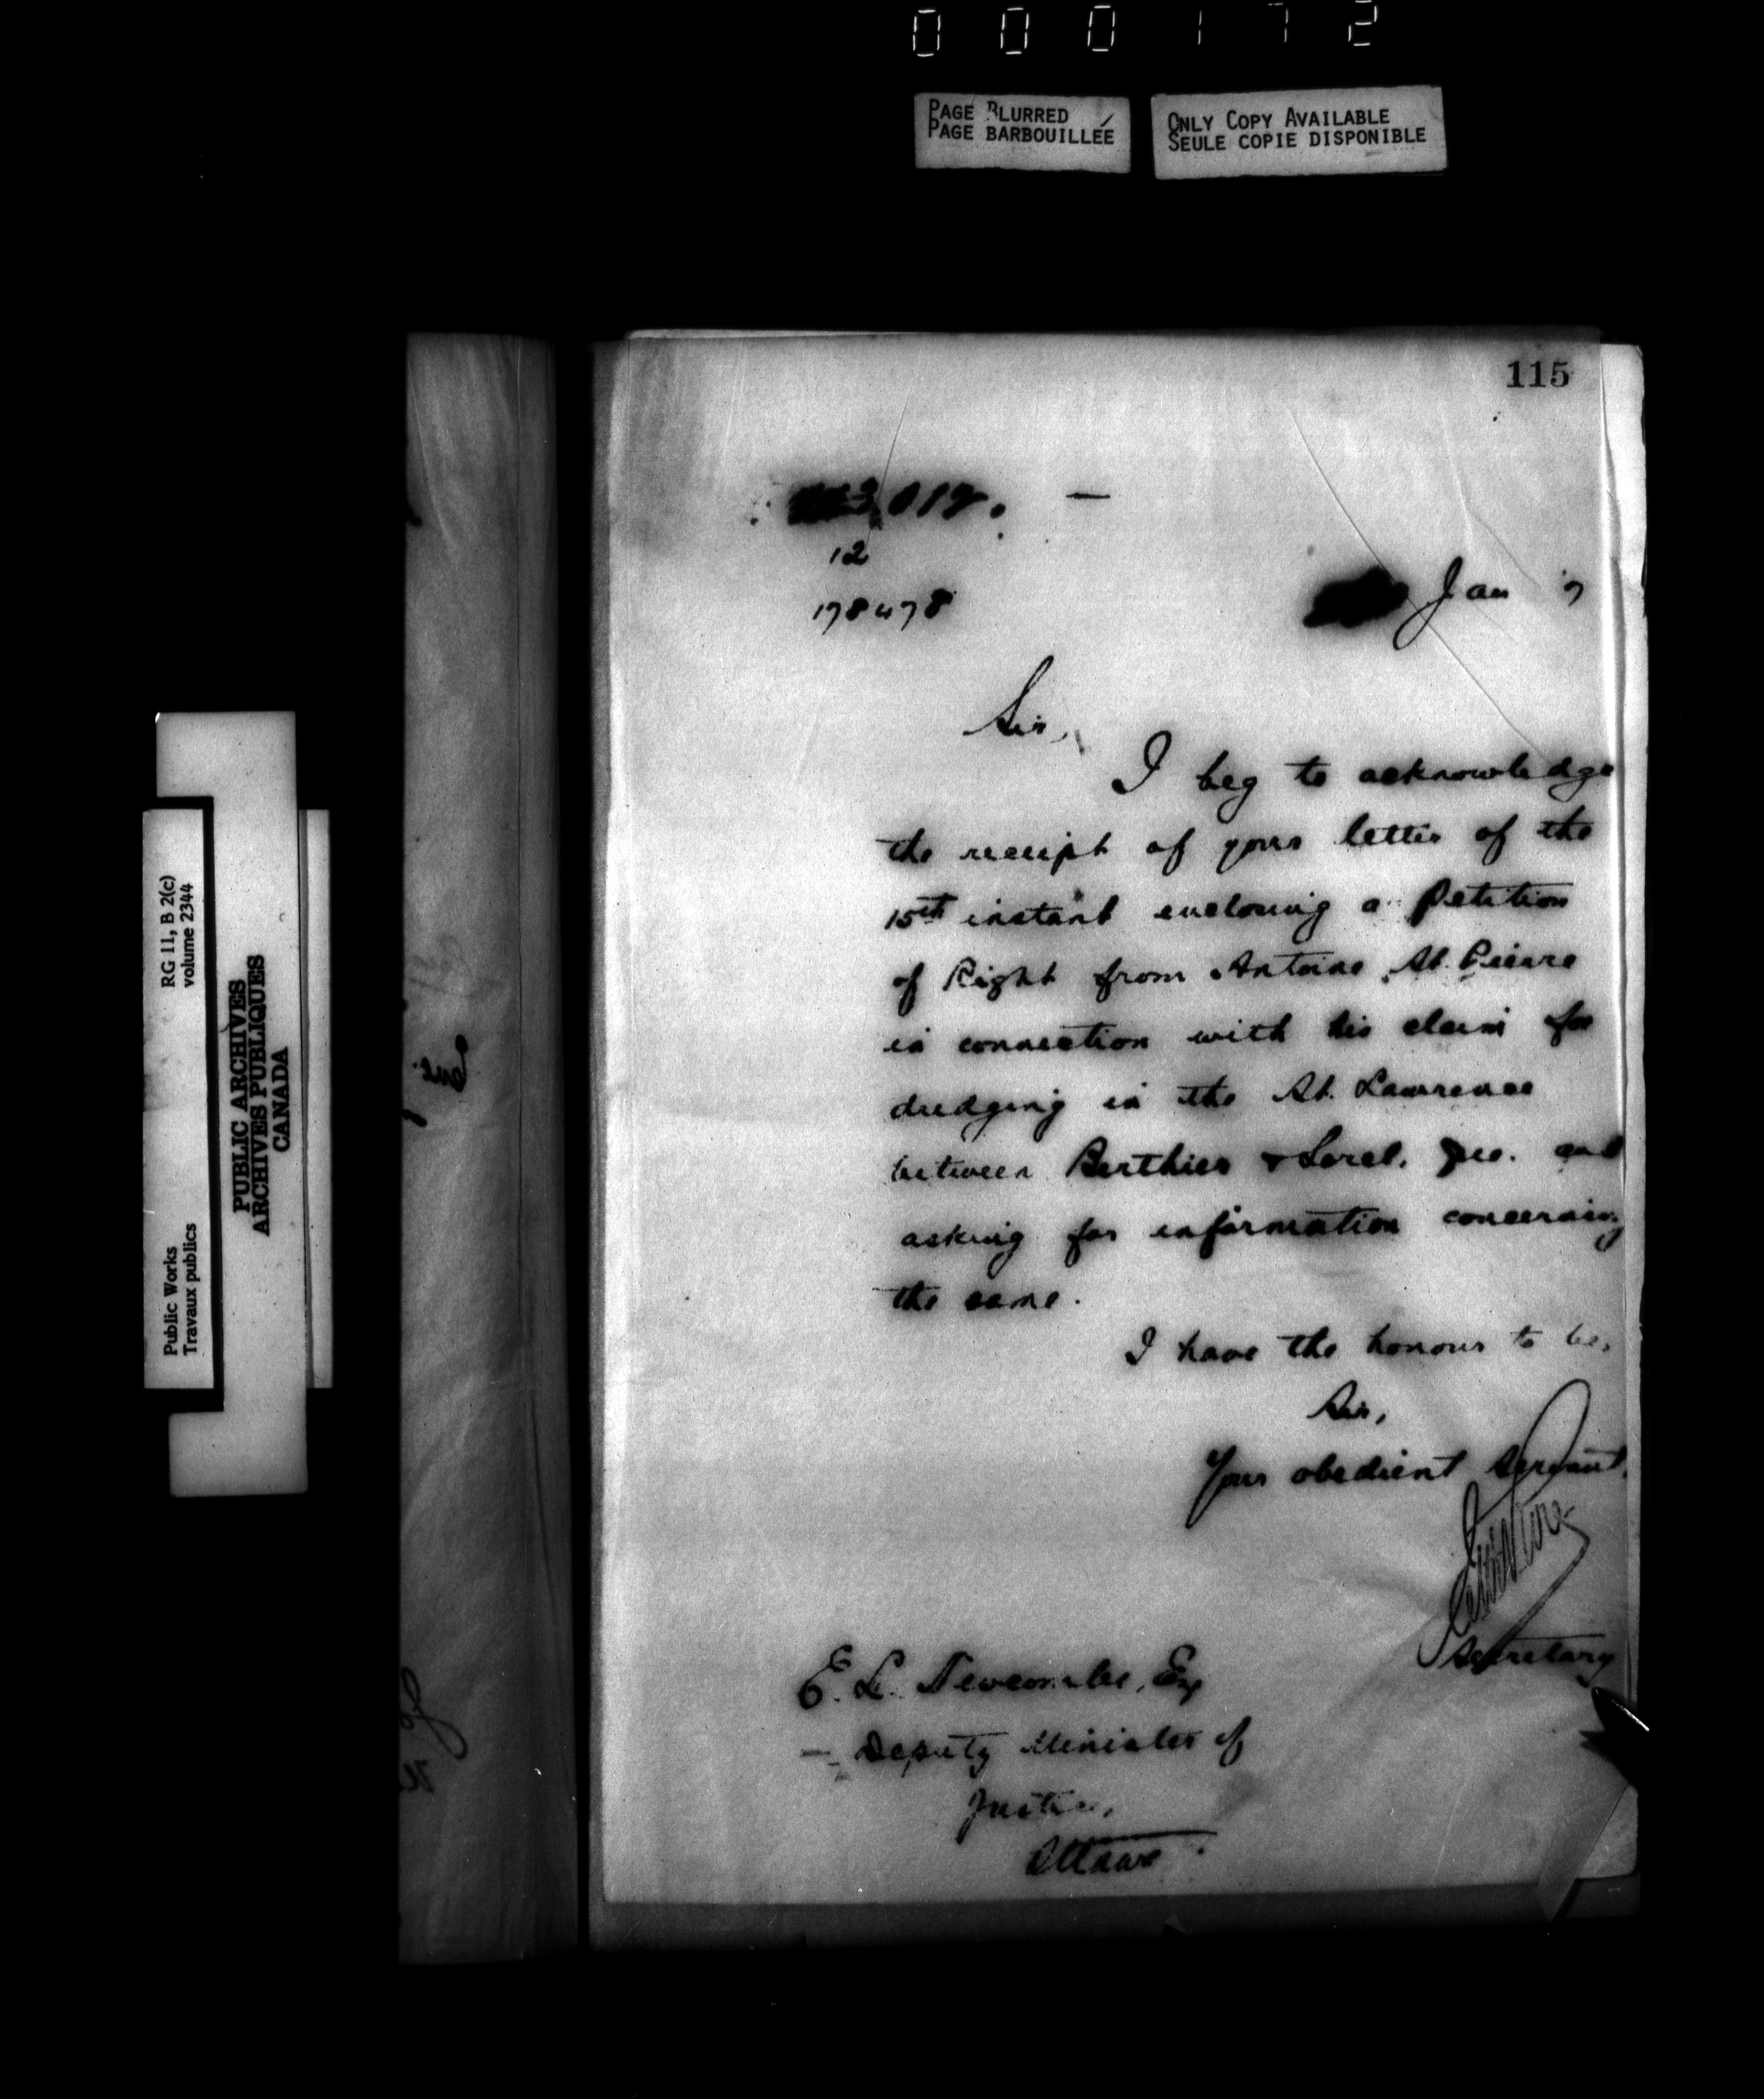 000172
PAGE BLURRED
PAGE BARBOUILLÉE
ONLY COPY AVAILABLE
SEULE COPIE DISPONIBLE
RG 11, B 2(c)
volume 2344
PUBLIC ARCHIVES
ARCHIVES PUBLIQUES
CANADA
Public Works
Travaux publics
115
12
178478
Jan 7
Sir,
I beg to acknowledge
the receipt of your letter of the
15th instant enclosing a Petition
of Right from Antoine St. Pierre
in connection with his claim for
dredging in the St. Lawrence
between Berthier & Sorel, Que. and
asking for information concerning
the same.
I have the honour to be,
Sir,
Your obedient servant.
Secretary
E. L. Newcombe, Esq
Deputy Minister of
Justice,
Ottawa